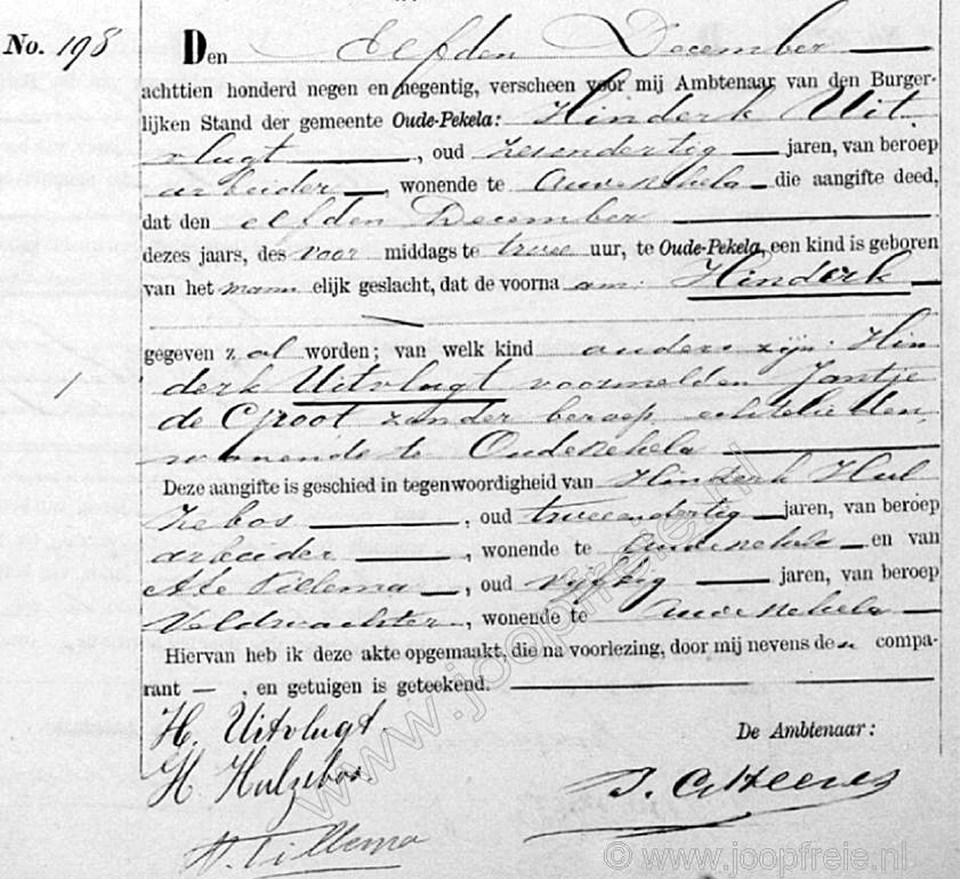 No. 198
Den Elfden December
achttien honderd negen en negentig, verscheen voor mij Ambtenaar van den Burger-
lijken Stand der gemeente Oude-Pekela: Hinderk Uit
vlugt, oud zesendertig jaren, van beroep
arbeider, wonende te Oudepekela die aangifte deed,
dat den elfden December
dezes jaars, des voor middags te twee uur, te Oude-Pekela, een kind is geboren
van het mann elijk geslacht, dat de voorna am: Hinderk
gegeven z al worden; van welk kind ouders zijn: Hin
derk Uitvlugt voormeld en Jantje
de Groot zonder beroep, echtelieden,
wonende te Oudepekela
Deze aangifte is geschied in tegenwoordigheid van Hinderk Hul
zebos, oud tweeendertig jaren, van beroep
arbeider, wonende te Oudepekela en van
Tillema, oud vijftig jaren, van beroep
Veldwachter, wonende te Oudepekela
Hiervan heb ik deze akte opgemaakt, die na voorlezing, door mij nevens de n compa-
rant —, en getuigen is geteekend.
H. Uitvlugt
De Ambtenaar:
H. Hulzebos
A. Tillema
www.joopfreie.nl
© www.joopfreie.nl